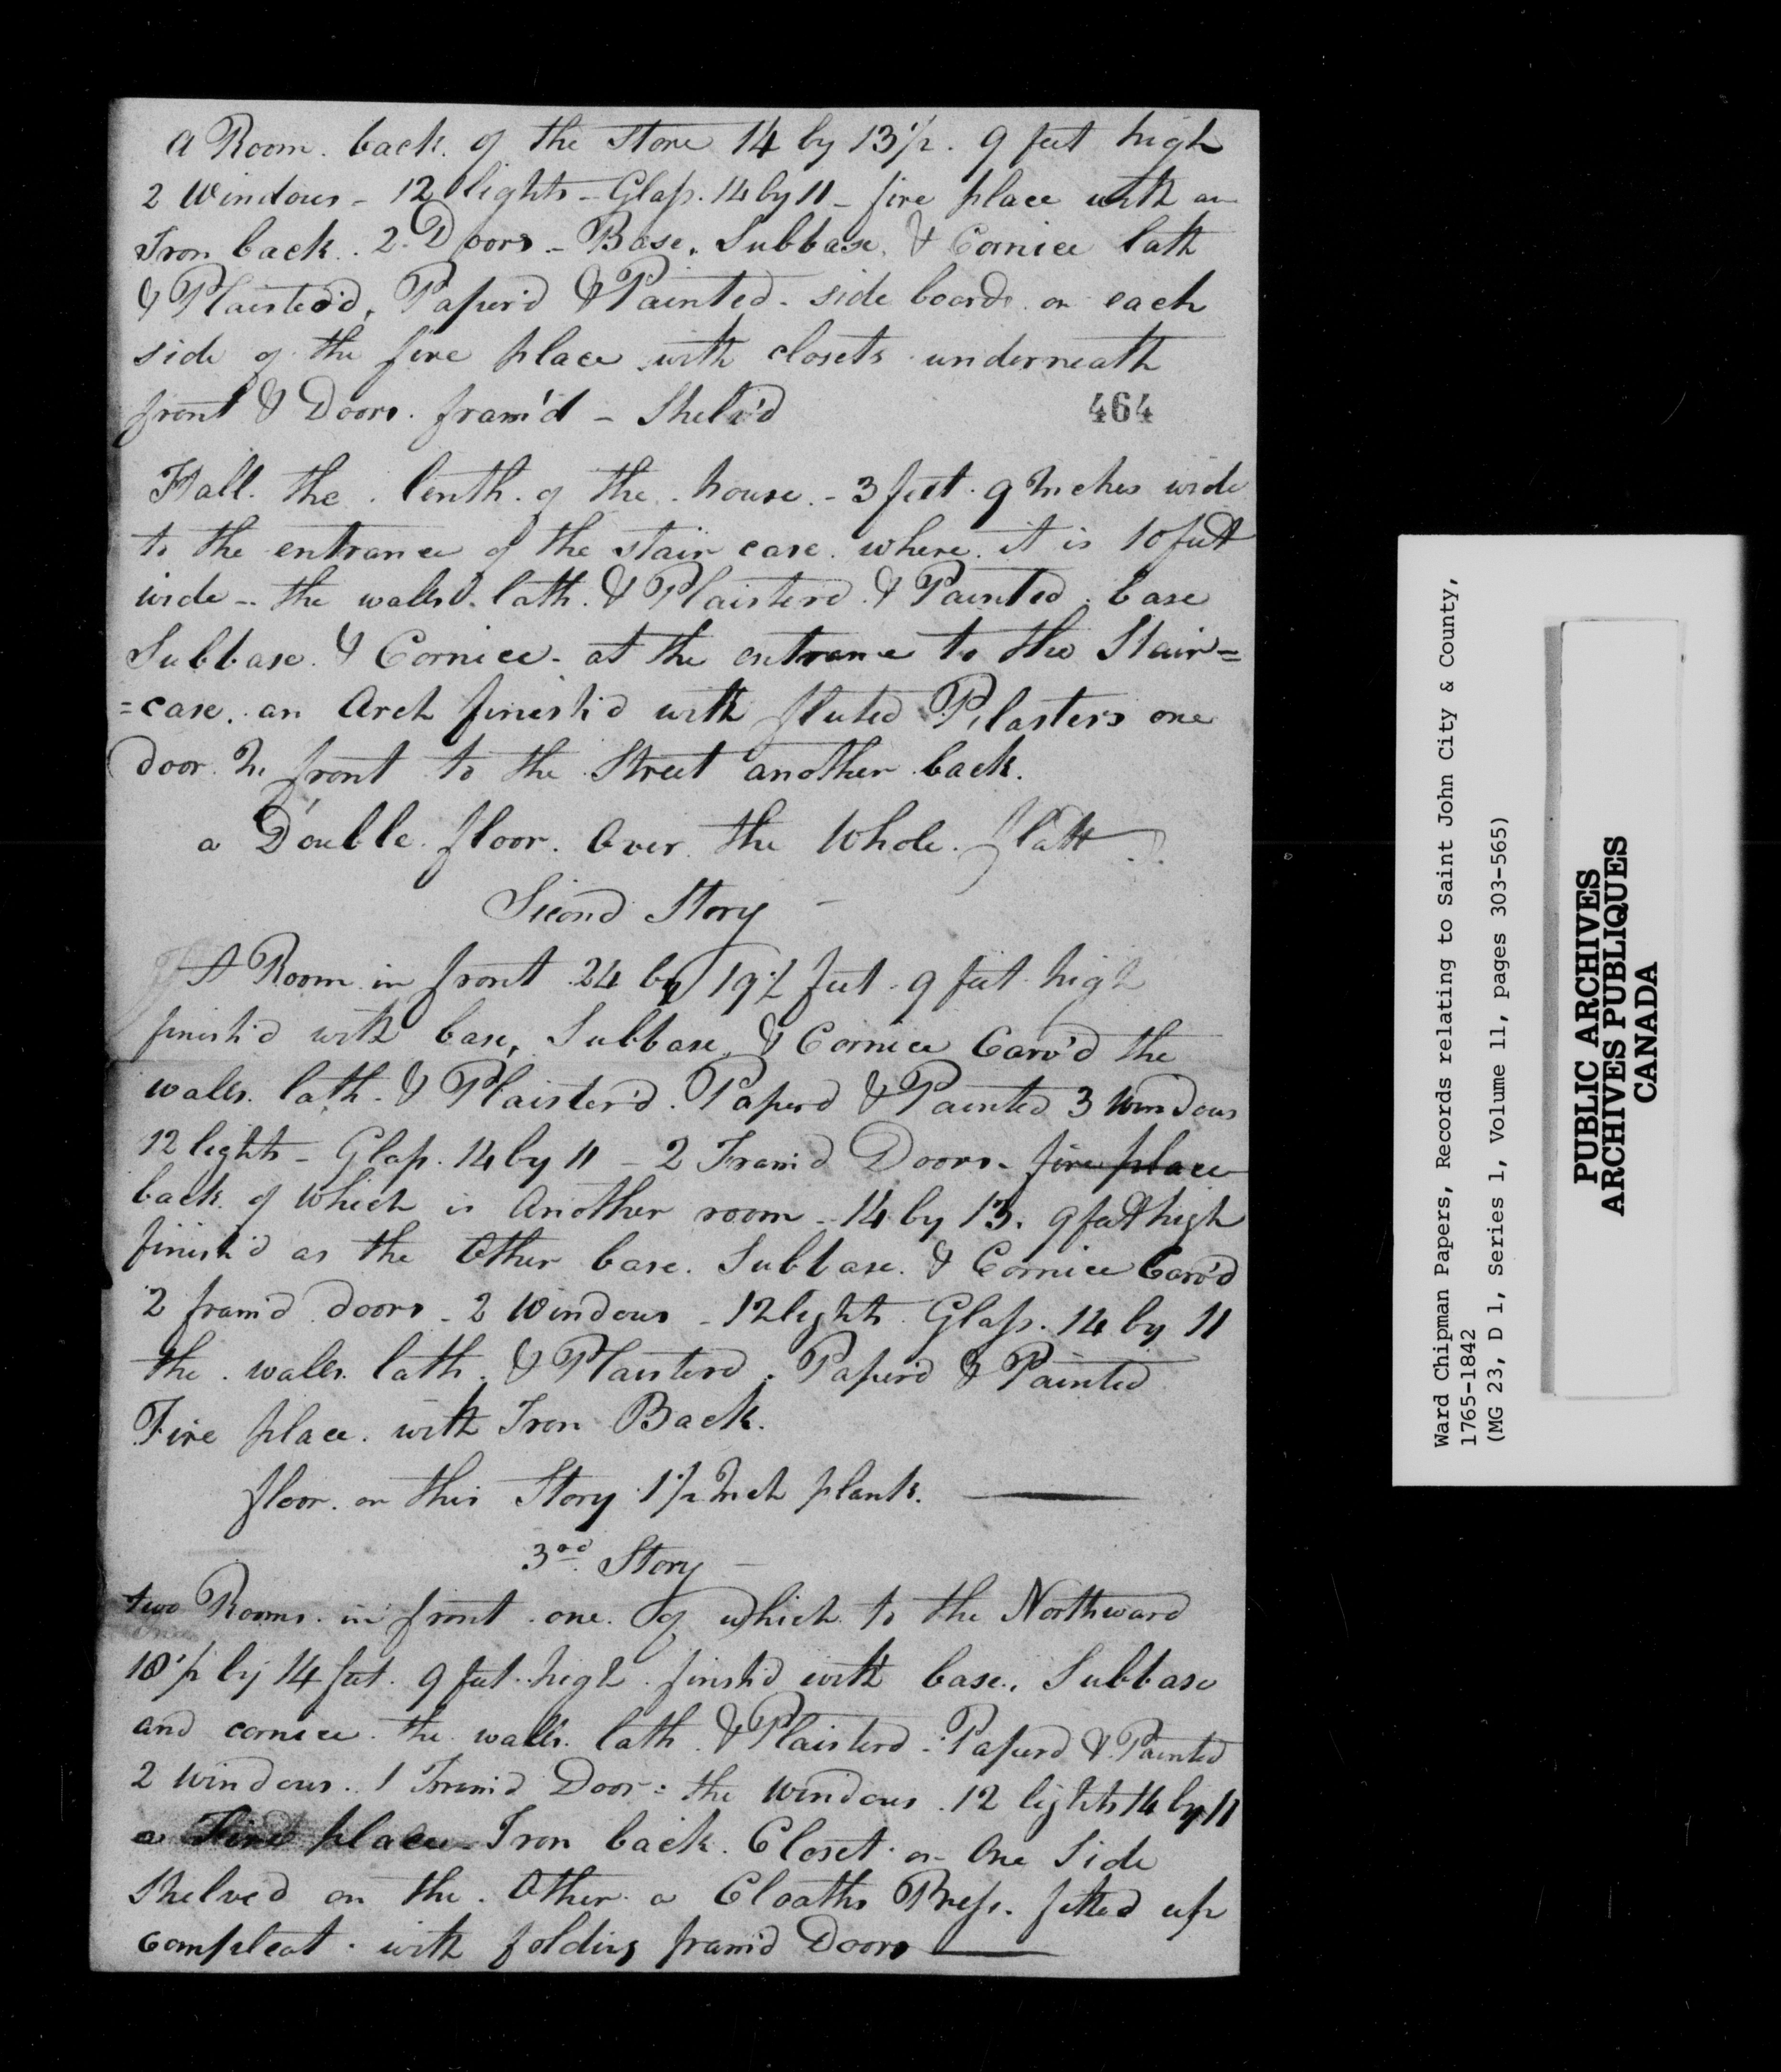 a Room. back. of the store 14 by 13 1/2. 9 feet high
2 Windows - 12 lights - Glass. 14 by 11 - fire place with an
Iron back.. 2 Doors - Base, Subbase, & Cornice lath
& Plaister'd, Paper'd & Painted - side boards on each
side of the fire place with closets underneath
front & Doors. fram'd - Shelv'd
464
Hall. the. lenth. of the. house. - 3 feet. 9 Inches wide
to the entrance of the stair case. where. it is 10 feet
wide - the walls. lath. & Plaisterd & Painted. base
Subbase. & Cornice - at the entrance to the Stair=
=case. an Arch finish'd with fluted Pilasters one
door In front to the Street another back.
a Double floor. Over. the Whole. flatt
Second Story
A Room in front 24 by 19 1/2 feet. 9 feet high
finish'd with base, Subbase, & Cornice Carv'd the
walls. lath. & Plaister'd. Paperd & Painted 3 Windows
12 lights - Glass. 14 by 11 - 2 Fram'd Doors - fire place
back. of Which is Another room - 14 by 13. 9 feet high
finish'd as the Other base. Subbase. & Cornice Carv'd
2 fram'd doors - 2 Windows - 12 lights Glass. 14 by 11
the. walls. lath. & Plaisterd. Paper'd & Painted
Fire place. with Iron Back.
floor. on this Story 1 1/2 Inch plank.
3rd. Story
two Rooms. in front. one. of which to the Northward
18 1/2 by 14 feet. 9 feet. high. finish'd with base., Subbase
and cornice. the walls. lath. & Plaisterd - Paperd & Painted
2 Windows.. 1 Fram'd Door: the Windows. 12 lights 14 by 11
a Fire place - Iron back. Closet. on One Side
Shelved on the. Other. a Cloaths Press. fitted up
Compleat. with folding fram'd Doors
Ward Chipman Papers, Records relating to Saint John City & County,
1765-1842
(MG 23, D 1, Series 1, Volume 11, pages 303-565)
PUBLIC ARCHIVES
ARCHIVES PUBLIQUES
CANADA